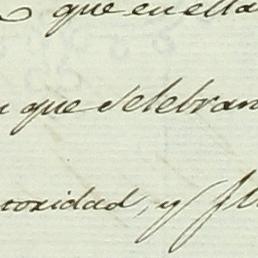 que en ella
que celebran
toridad, y